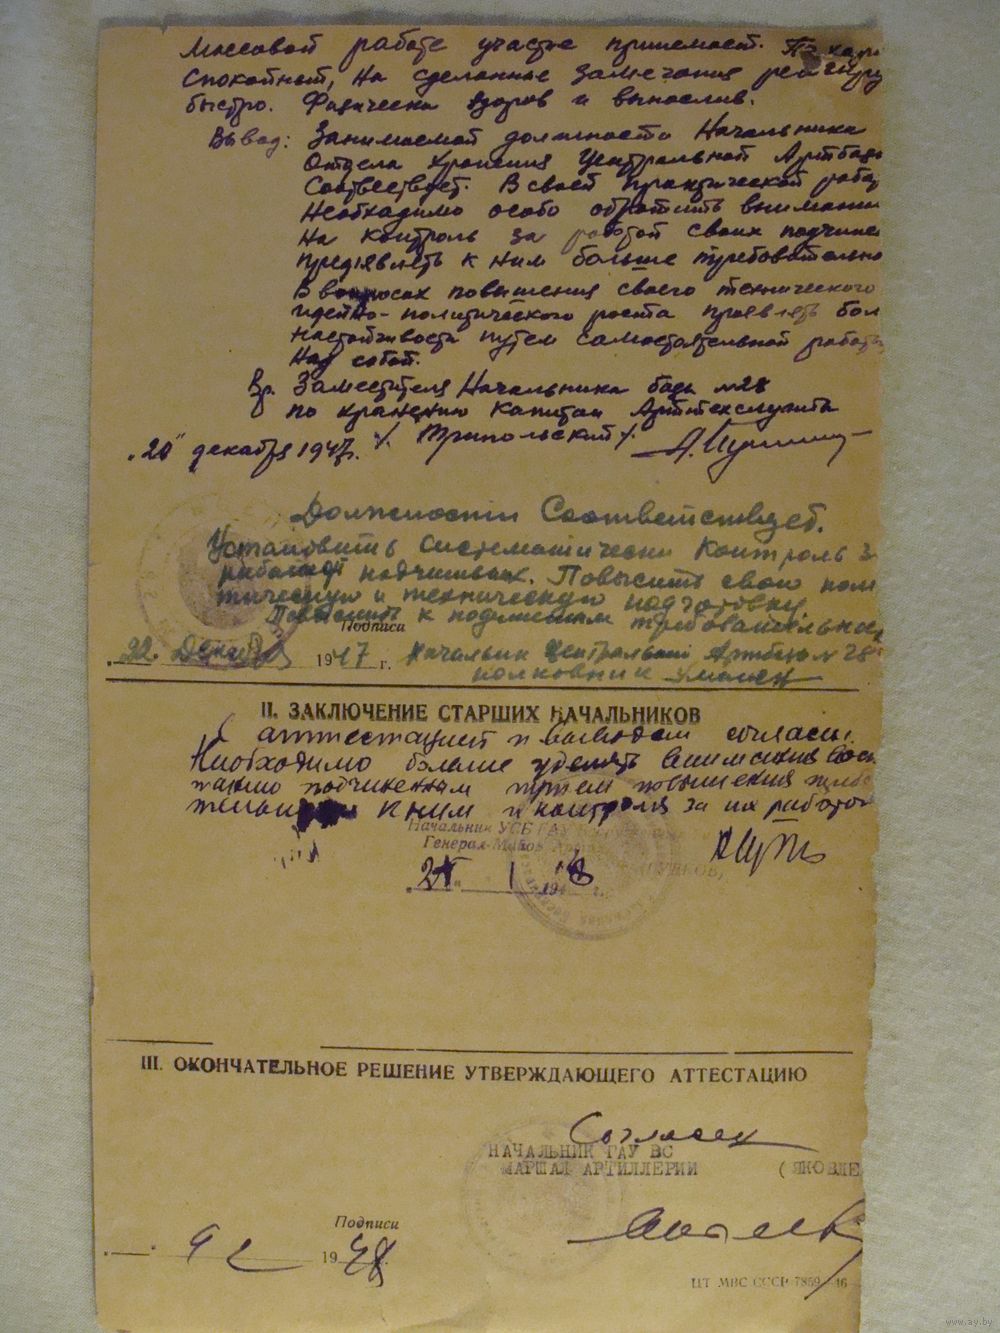 Массовой работе участие принемает. По хара
Спокойный, на сделанные замечания реагиру
быстро. Физически здоров и вынослив.
Вывод: Занимаемой должности Начальника
Отдела Хранения Центральной Артбазы
Соотвествует. В своей практической рабо
Необходимо особо обратить внимани
На контроль за работой своих подчинен
предявлять к ним больше требовательно
В вопросах повышения своего технического
идейно-политического роста проявлять бол
настойчивость путем самостоятельной работы
Над собой.
Вр. Заместителя Начальника базы №28
по хранению Капитан Арттехслужбы
„20" декабря 1947г. /Трипольский/
Должности Соответствует.
Установить систематически контроль з
работой подчиненых. Повысить свою поли
тическую и техническую подготовку
Повысить к подчиненым требовательнос
Подписи
„22" Декабря 1947 г. Начальник Центральной Артбазы №28
полковник
II. ЗАКЛЮЧЕНИЕ СТАРШИХ НАЧАЛЬНИКОВ
С аттестацией и выводом согласен.
Необходимо больше уделять внимания воспи
танию подчиненным путем повышения
к ним и контроля за их работой
Начальник УСВ ГАУ
Генерал-Майор
1 1948 г.
III. ОКОНЧАТЕЛЬНОЕ РЕШЕНИЕ УТВЕРЖДАЮЩЕГО АТТЕСТАЦИЮ
Согласен
НАЧАЛЬНИК ГАУ ВС
МАРШАЛ АРТИЛЛЕРИИ ( ЯКОВЛЕ
Подписи
1948
ЦТ МВС СССР 7859—46
www.ay.by